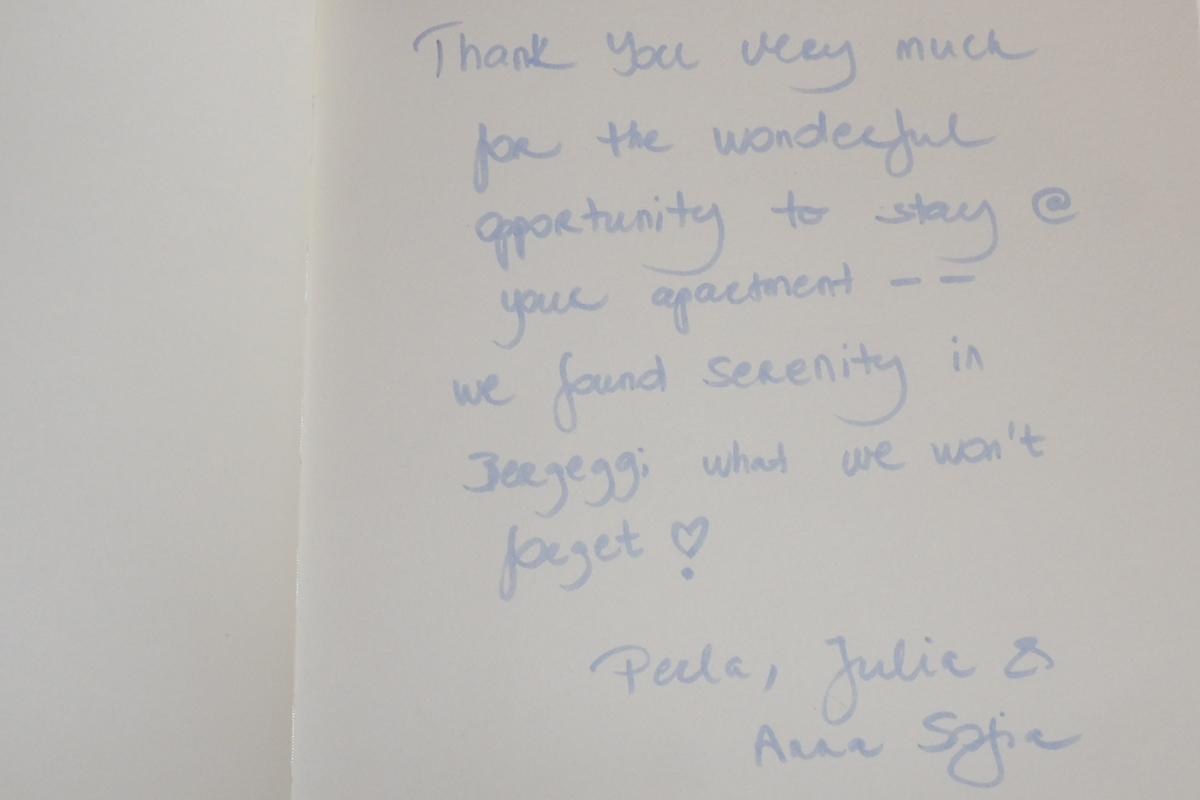 Thank you very much
for the wonderful
opportunity to stay @
your apartment - -
we found serenity in
Bergeggi what we won't
forget ♡
Perla, Julia &
Anna Sofia